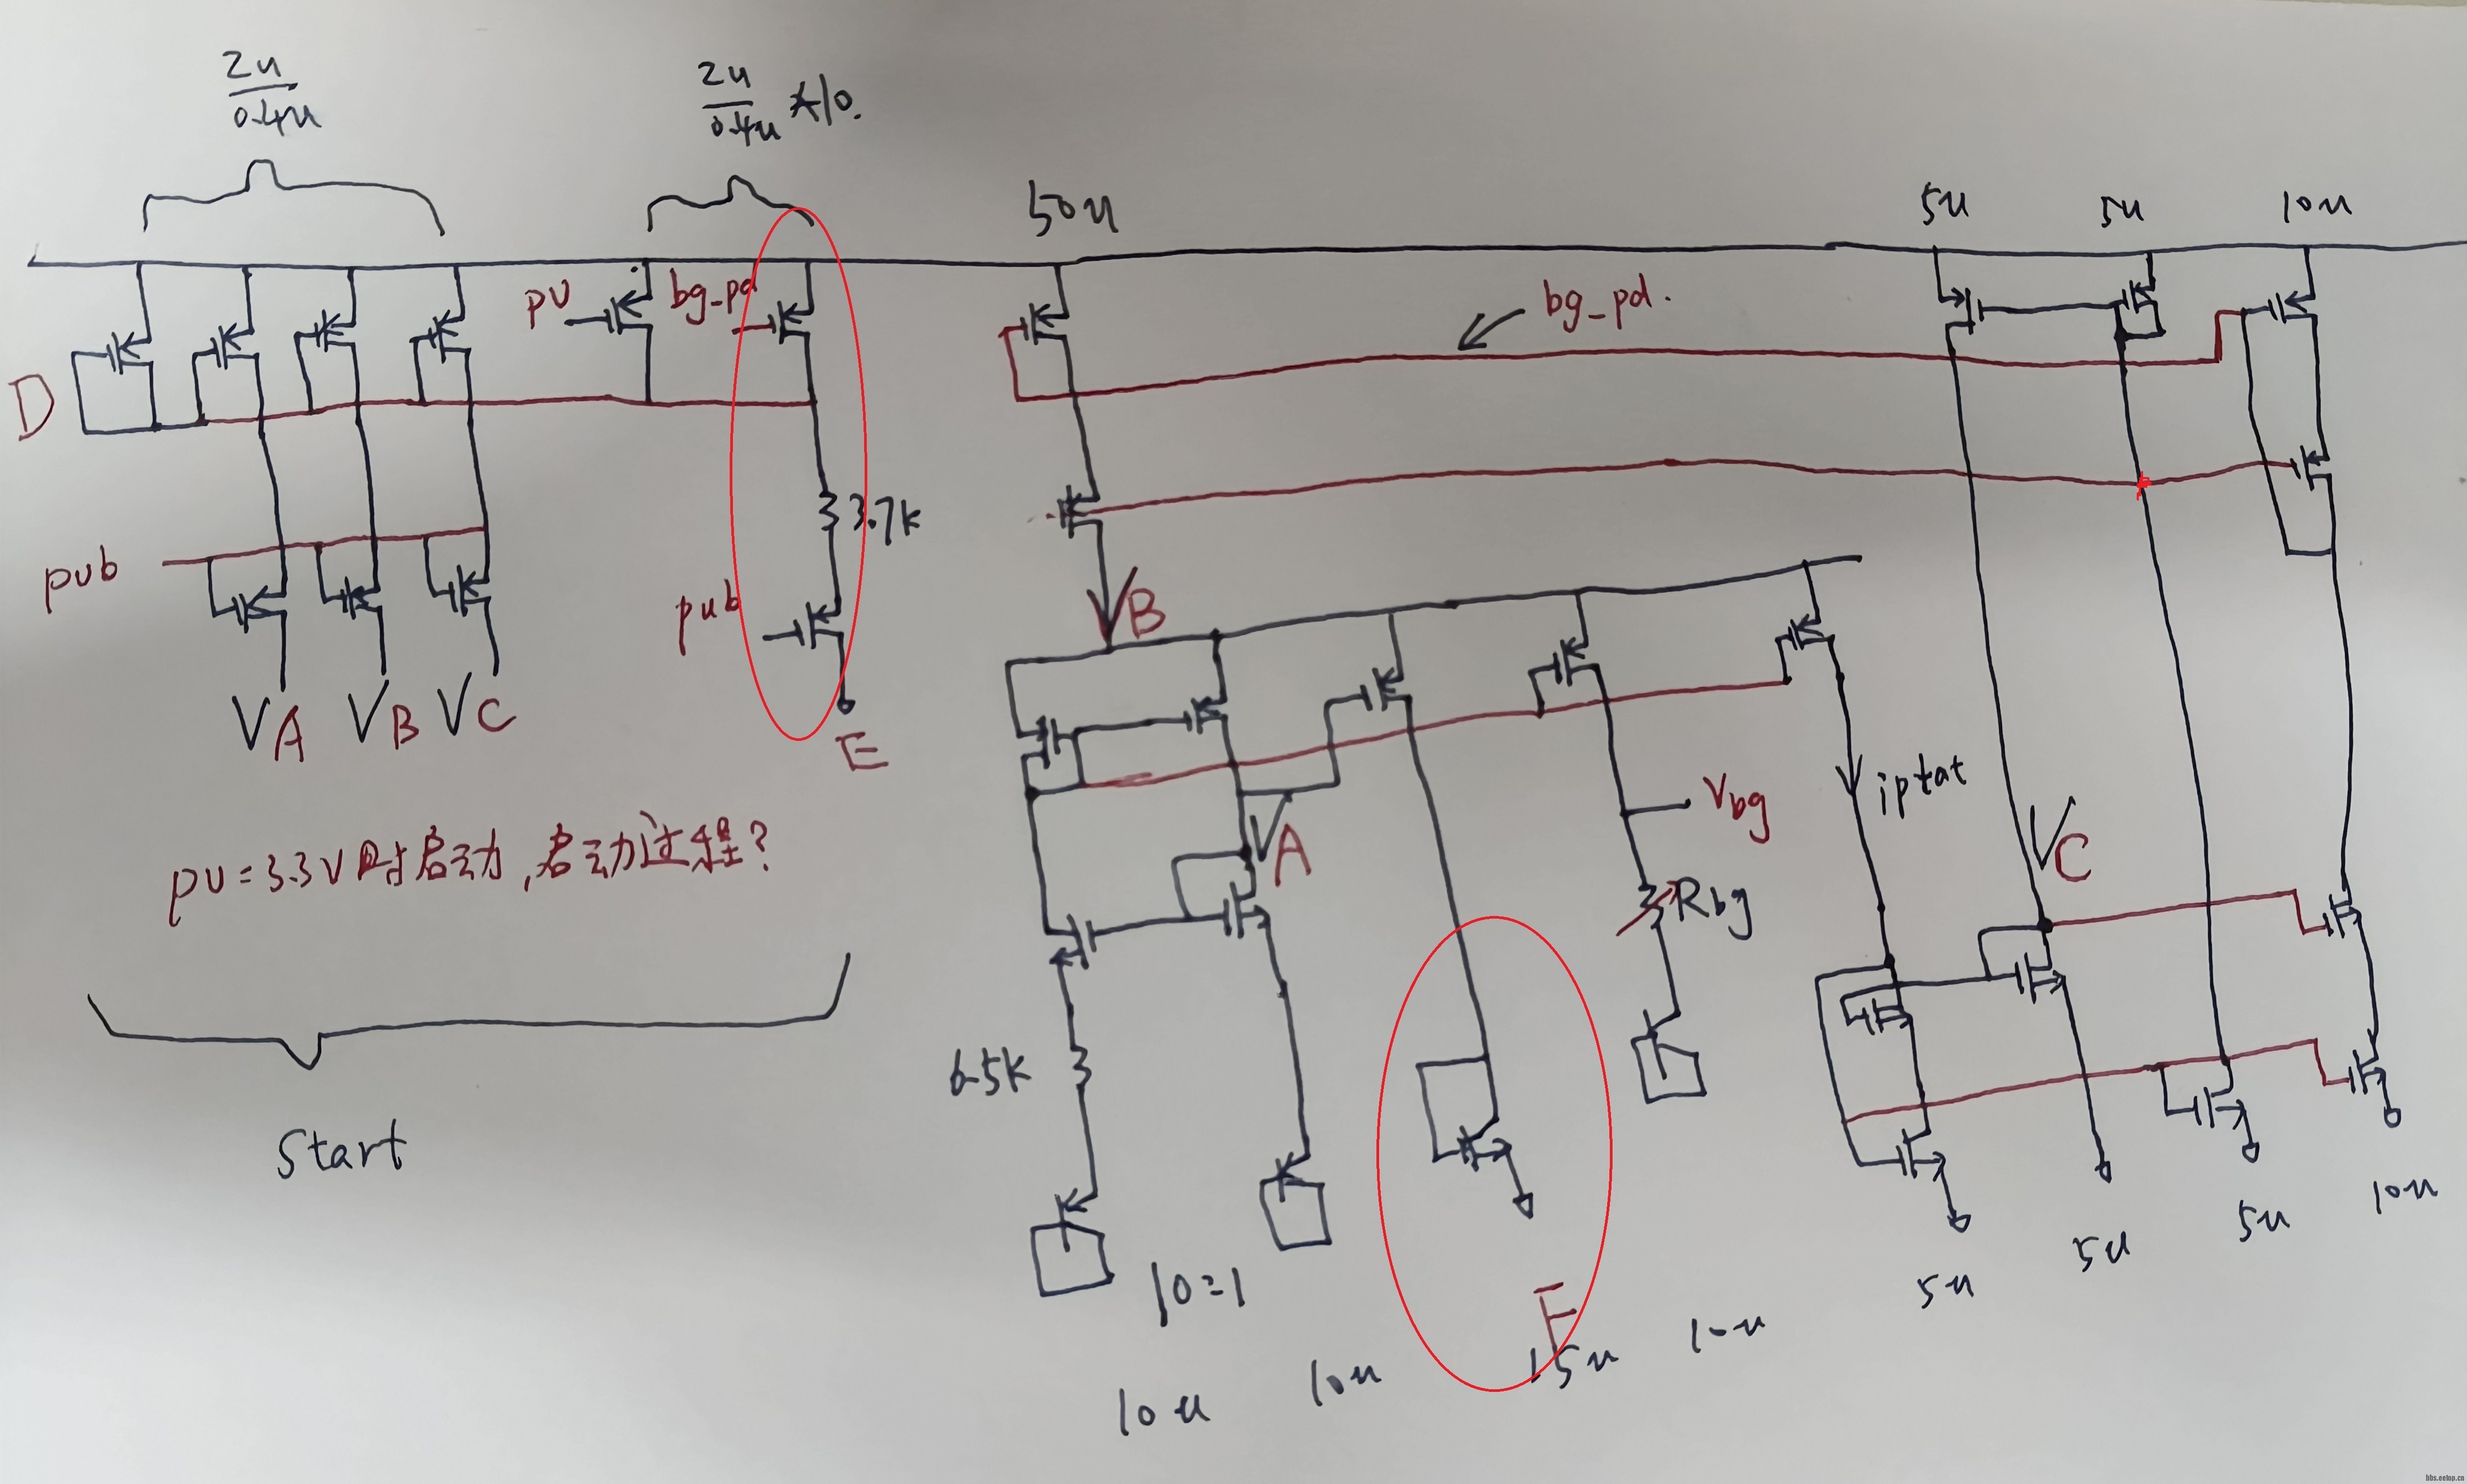 2u
0.4u
2u
0.4u *10.
50u
5u
5u
10u
pu
bg_pd
bg_pd.
D
3.7k
pub
pub
VA
VB
VC
E
VB
Vbg
iptat
VA
Rbg
VC
pu=3.3V时启动,启动过程?
6.5k
Start
10=1
F
10u
10u
15u
10u
5u
5u
5u
10u
bbs.eetop.cn